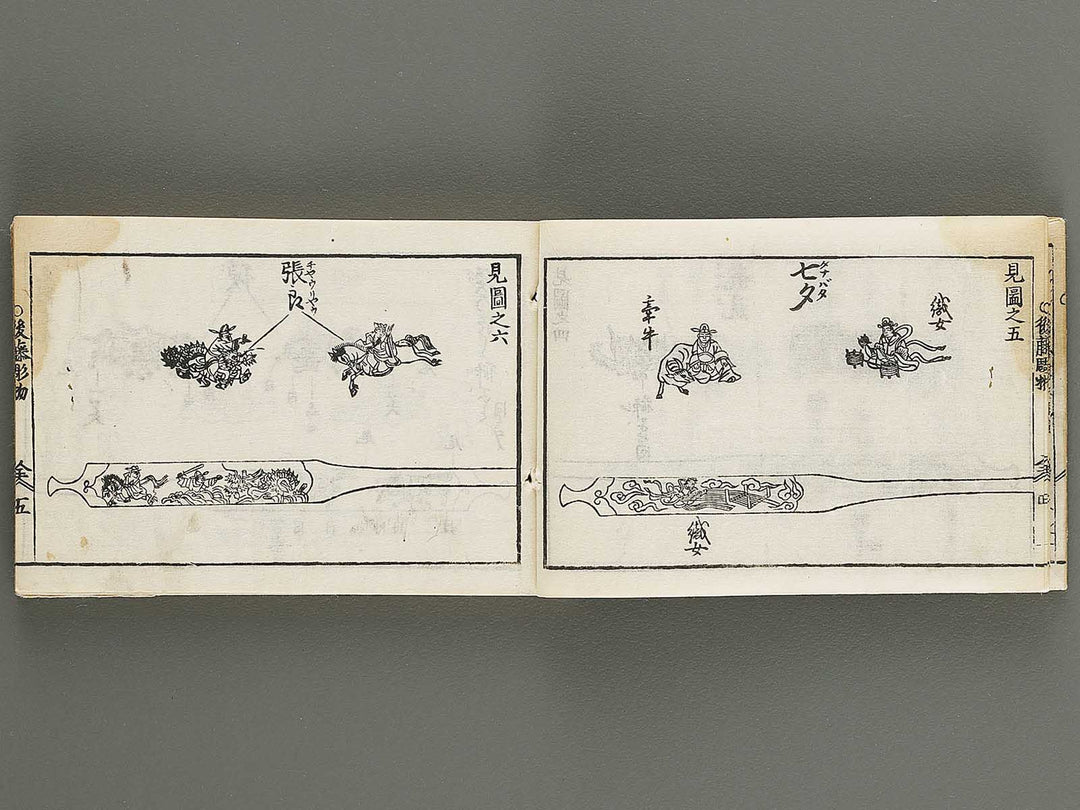 見圖之五
織女
七夕
タナバタ
牽牛
織女
見圖之六
張良
チヤウリヤウ
後藤彫物
五